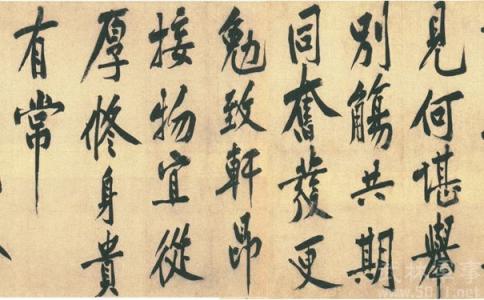 見何堪舉
別觴共期
同奮發更
勉致軒昂
接物宜從
厚修身貴
有常
www.5011.net